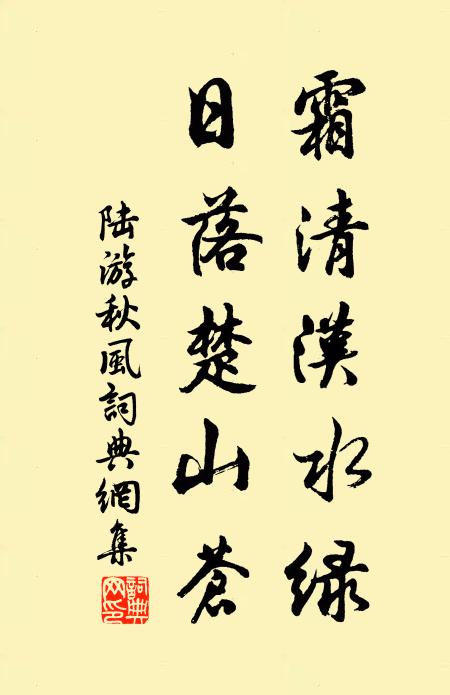 霜清漢水緑
日落楚山蒼
陆游秋風詞典網集
詞典网印